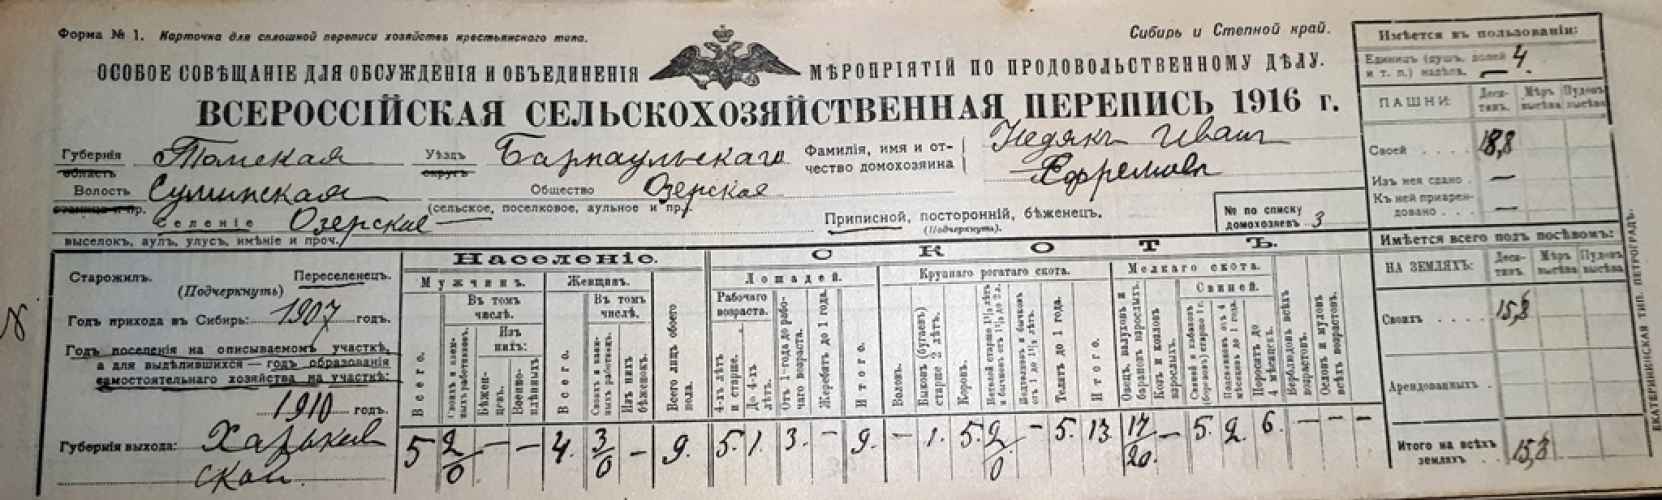 Форма № 1. Карточка для сплошной переписи хозяйствъ крестьянскаго типа.
Сибирь и Степной край.
ОСОБОЕ СОВѢЩАНІЕ ДЛЯ ОБСУЖДЕНІЯ И ОБЪЕДИНЕНІЯ МѢРОПРІЯТІЙ ПО ПРОДОВОЛЬСТВЕННОМУ ДѢЛУ.
ВСЕРОССІЙСКАЯ СЕЛЬСКОХОЗЯЙСТВЕННАЯ ПЕРЕПИСЬ 1916 г.
Губернія Томская Уѣздъ Барнаульскаго
область округъ
Фамилія, имя и от-
чество домохозяина
Недякъ Иванъ
Ефремовъ
Волость Суминская Общество Озерская
станица и пр. (сельское, поселковое, аульное и пр.)
Селеніе Озерские
выселокъ, аулъ, улусъ, имѣніе и проч.
Приписной, посторонній, бѣженецъ.
(Подчеркнуть).
№ по списку
домохозяевъ 3
Старожилъ. Переселенецъ.
(Подчеркнуть)
Годъ прихода въ Сибирь: 1907 годъ.
Годъ поселенія на описываемомъ участкѣ,
а для выдѣлившихся — годъ образованія
самостоятельнаго хозяйства на участкѣ:
1910 годъ.
Губернія выхода: Харьков
ской.
Населеніе.
Мужчинъ. Женщинъ.
Всего.
Въ томъ числѣ.
Своихъ и наем-ныхъ работниковъ.
Изъ нихъ:
Бѣжен-цевъ.
Военно-плѣнныхъ
Всего.
Въ томъ числѣ.
Своихъ и наем-ныхъ работниц.
Изъ нихъ бѣженокъ.
Всего лицъ обоего пола.
СКОТЪ.
Лошадей.
Рабочаго возраста.
4-хъ лѣтъ и старше.
До 4-хъ лѣтъ.
Отъ 1-года до рабо-чаго возраста.
Жеребятъ до 1 года.
Итого.
Крупнаго рогатаго скота.
Воловъ.
Быковъ (бугаевъ) старше 2 лѣтъ.
Коровъ.
Нетелей старше 1½ лѣтъ и бычковъ отъ 1½ до 2 л.
Подтелковъ и бычковъ отъ 1 до 1½ лѣтъ.
Телятъ до 1 года.
Итого.
Мелкаго скота.
Овецъ, валуховъ и барановъ взрослыхъ.
Козъ и козловъ взрослыхъ.
Свиней.
Свиней и кабановъ (борововъ) старше 1 г.
Подсвинковъ отъ 4 мѣсяцевъ до 1 года.
Поросятъ до 4 мѣсяцевъ.
Верблюдовъ всѣхъ возрастовъ.
Ословъ и муловъ всѣхъ возрастовъ.
5 2/0 — — 4. 3/0 — 9. 5. 1. 3. — 9. — 1. 5. 2/0 — 5. 13. 17/20. — 5. 2. 6. — — —
Имѣется въ пользованіи:
Единицъ (душъ, долей
и т. п.) надѣла. 4
ПАШНИ: Деся-тинъ. Мѣръ высѣва Пудовъ высѣва
Своей 18,8
Изъ нея сдано —
Къ ней приарен-
довано —
Имѣется всего подъ посѣвомъ:
НА ЗЕМЛЯХЪ: Деся-тинъ. Мѣръ высѣва Пудовъ высѣва
Своихъ 15,8
Арендованныхъ
Итого на всѣхъ
земляхъ 15,8
ЕКАТЕРИНИНСКАЯ ТИП. ПЕТРОГРАДЪ.